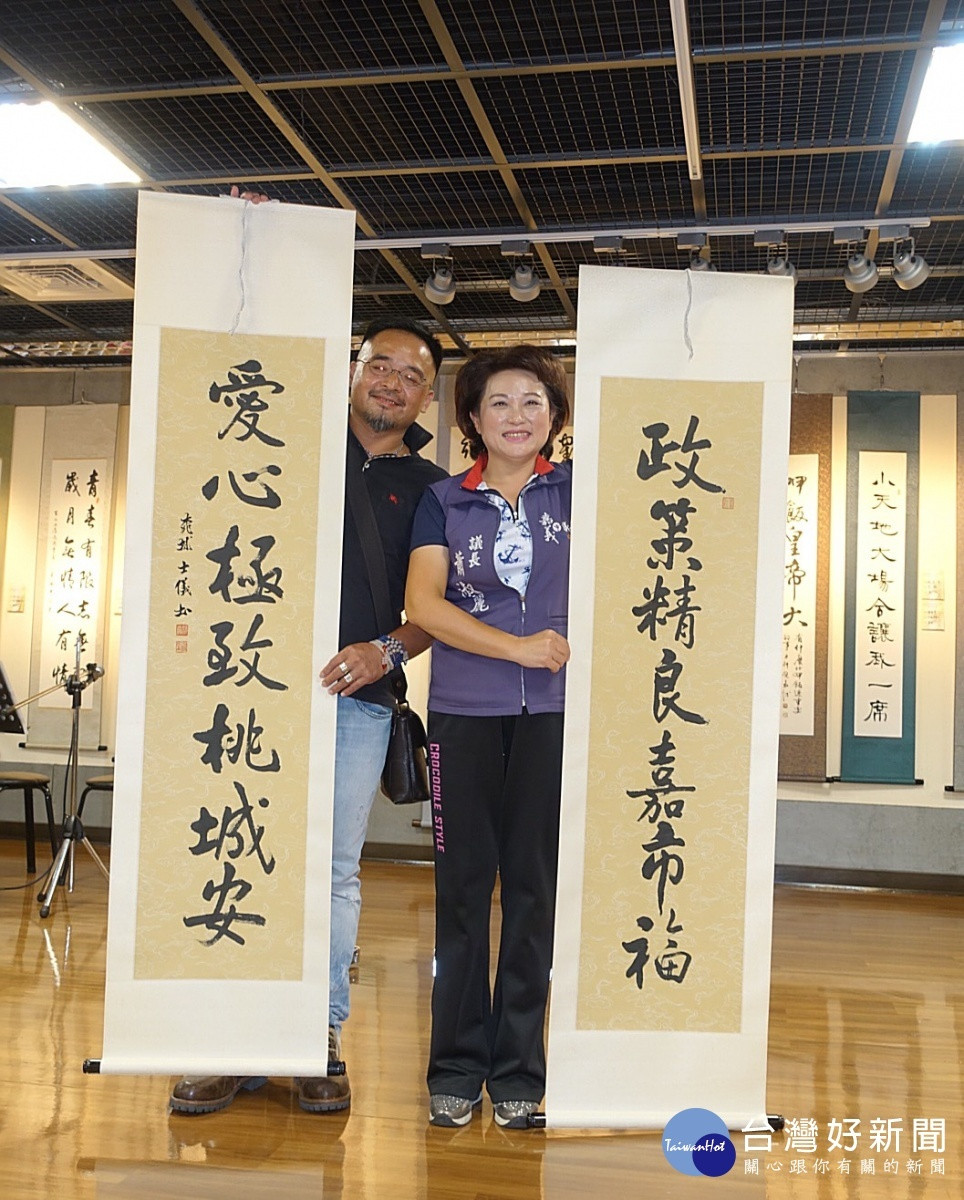 政策精良嘉市福
愛心極致桃城安
士儀書
議長
蕭淑麗
嘉義市
CROCODILE STYLE
青春有限志無
歲月無情人有情
小天地大場合讓我一席
坤飯皇帝大
TaiwanHot
台灣好新聞
關心跟你有關的新聞